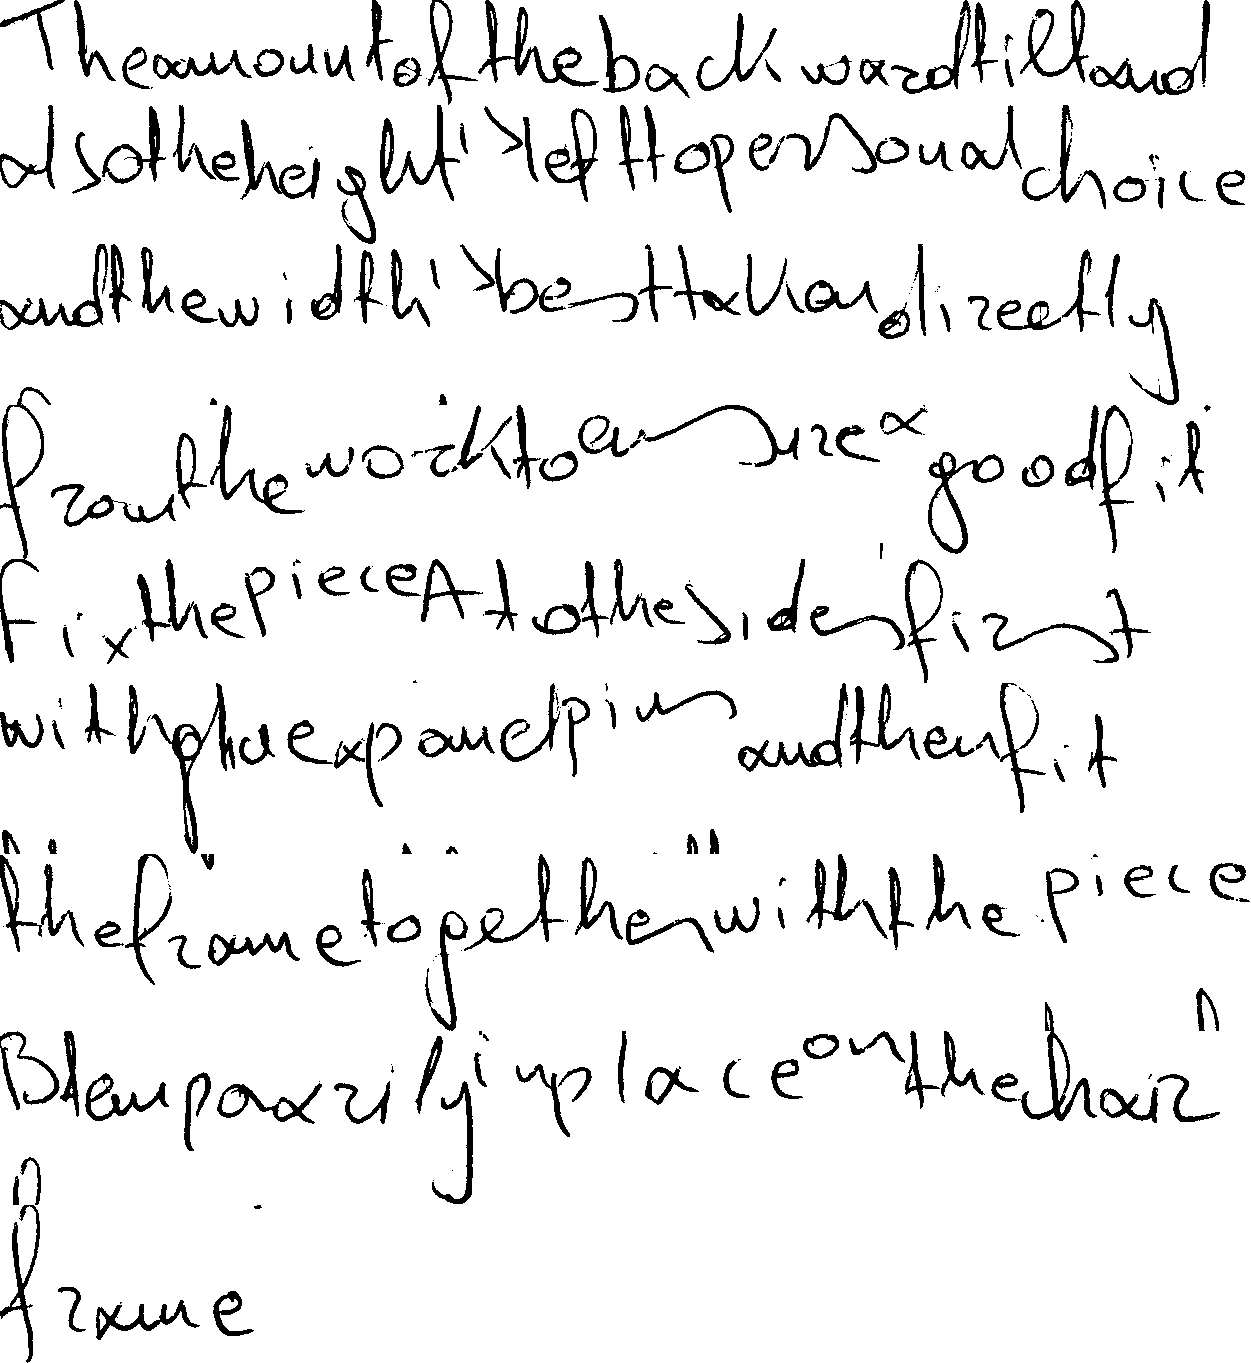 The amount of the backward tilt and
also the height is left to personal choice
and the width is best taken directly
from the work to ensure a good fit
fix the piece A to the sides first
with glue panel pins and then fit
the frame together with the piece
B temporarily in place on the chair
frame